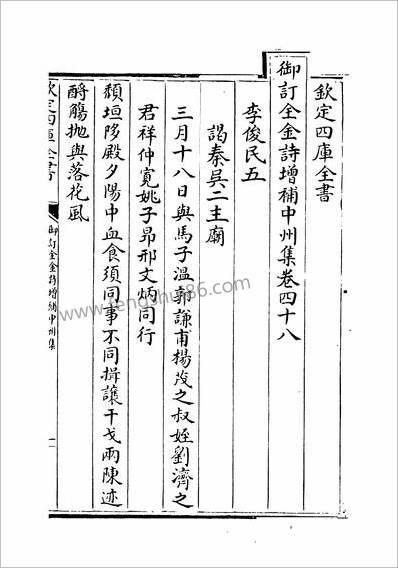 欽定四庫全書
御訂全金詩增補中州集卷四十八
李俊民五
謁秦吳二主廟
三月十八日與馬子溫郭謙甫楊茂之叔姪劉濟之
君祥仲寛姚子昂邢文炳同行
頹垣陊殿夕陽中血食須同事不同揖讓干戈兩陳迹
酹觴抛與落花風
欽定四庫全書
御訂全金詩增補中州集
一
www.fengshui86.com